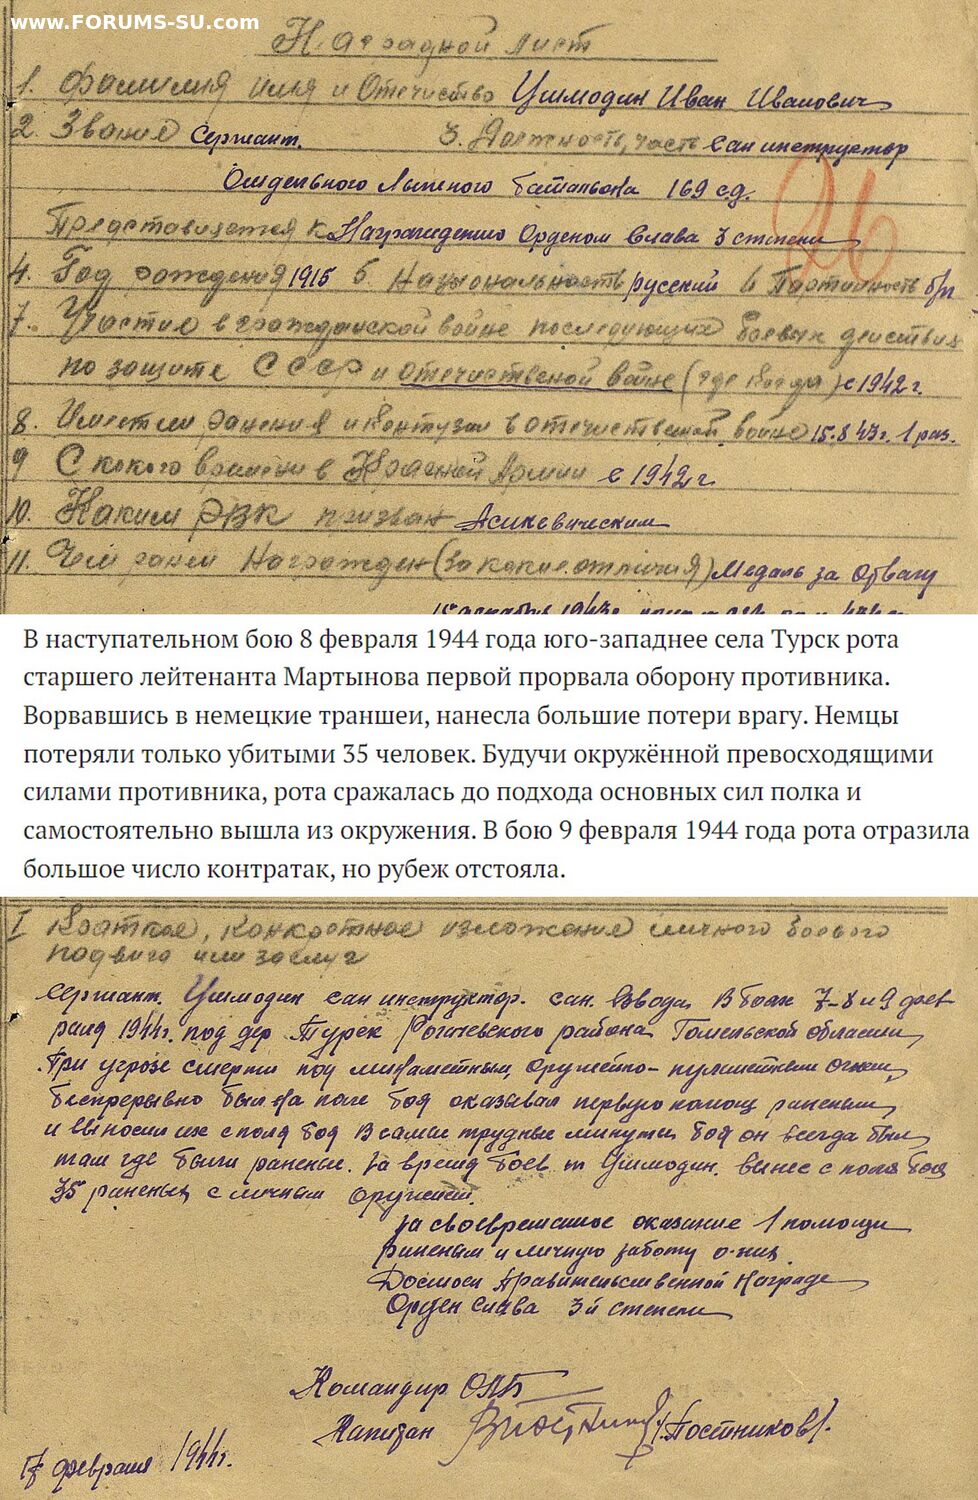 www.FORUMS-SU.com
Наградной лист
1. Фамилия имя и Отечество Ушмодин Иван Иванович
2. Звание Сержант. 3. Должность, часть Сан инструктор
Отдельного Лыжного батальона 169 с.д.
Представляется к Награждению Орденом Слава 3 степени
26
4. Год рождения 1915 5. Национальность русский 6 Партийность б/п
7. Участие в гражданской войне последующих боевых действиях
по защите СССР и отечественной войне (где когда) с 1942 г.
8. Имеет ли ранения и контузии в отечественной войне 15.8.43 г. 1 раз.
9 С какого времени в Красной Армии с 1942 г.
10. Каким РВК призван
11. Чем ранее Награжден (за какие отличия) Медаль за Отвагу
В наступательном бою 8 февраля 1944 года юго-западнее села Турск рота
старшего лейтенанта Мартынова первой прорвала оборону противника.
Ворвавшись в немецкие траншеи, нанесла большие потери врагу. Немцы
потеряли только убитыми 35 человек. Будучи окружённой превосходящими
силами противника, рота сражалась до подхода основных сил полка и
самостоятельно вышла из окружения. В бою 9 февраля 1944 года рота отразила
большое число контратак, но рубеж отстояла.
I Краткое, конкретное изложение личного боевого
подвига или заслуг
Сержант. Ушмодин сан инструктор. сан. Взвода. В боях 7-8 и 9 фев
раля 1944 г. под дер. Турск Рогачевского района Гомельской области,
При угрозе смерти под минометным, оружейно-пулеметным огнем,
беспрерывно был на поле боя оказывал первую помощ раненым,
и выносил их с поля боя В самые трудные минуты боя он всегда был
там где были раненые. За время боев т. Ушмодин. вынес с поля боя
35 раненых с личным оружием.
За своевременное оказание 1 помощи
раненым и личную заботу о них
Достоен Правительственной Награде
Орден Слава 3й степени
Командир ОЛБ
Капитан /Постников/.
17 февраля 1944 г.